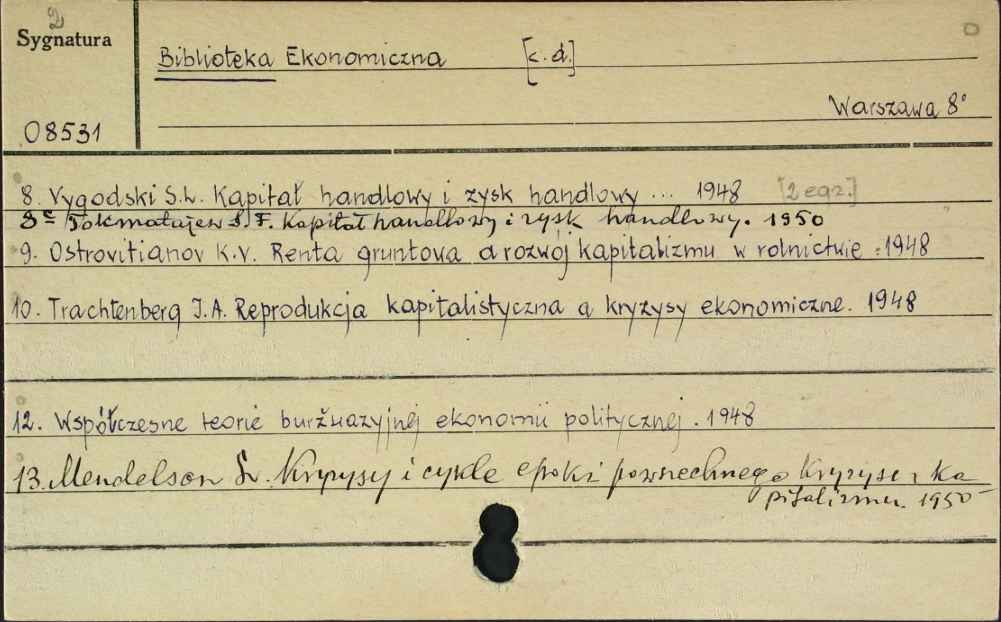 2
Sygnatura
Biblioteka Ekonomiczna [c.d.]
Warszawa 8°
08531
8. Vygodski S.L. Kapitał handlowy i zysk handlowy ... 1948 [2 egz.]
8c Tokmatajew S.F. Kapitał handlowy i zysk handlowy. 1950
9. Ostrovitianov K.V. Renta gruntowa a rozwój kapitalizmu w rolnictwie. 1948
10. Trachtenberg J.A. Reprodukcja kapitalistyczna a kryzysy ekonomiczne. 1948
12. Współczesne teorie buržuazyjnej ekonomii politycznej. 1948
13. Mendelson L. Kryzysy i cykle epoki powszechnego kryzysu ka
pitalizmu. 1950